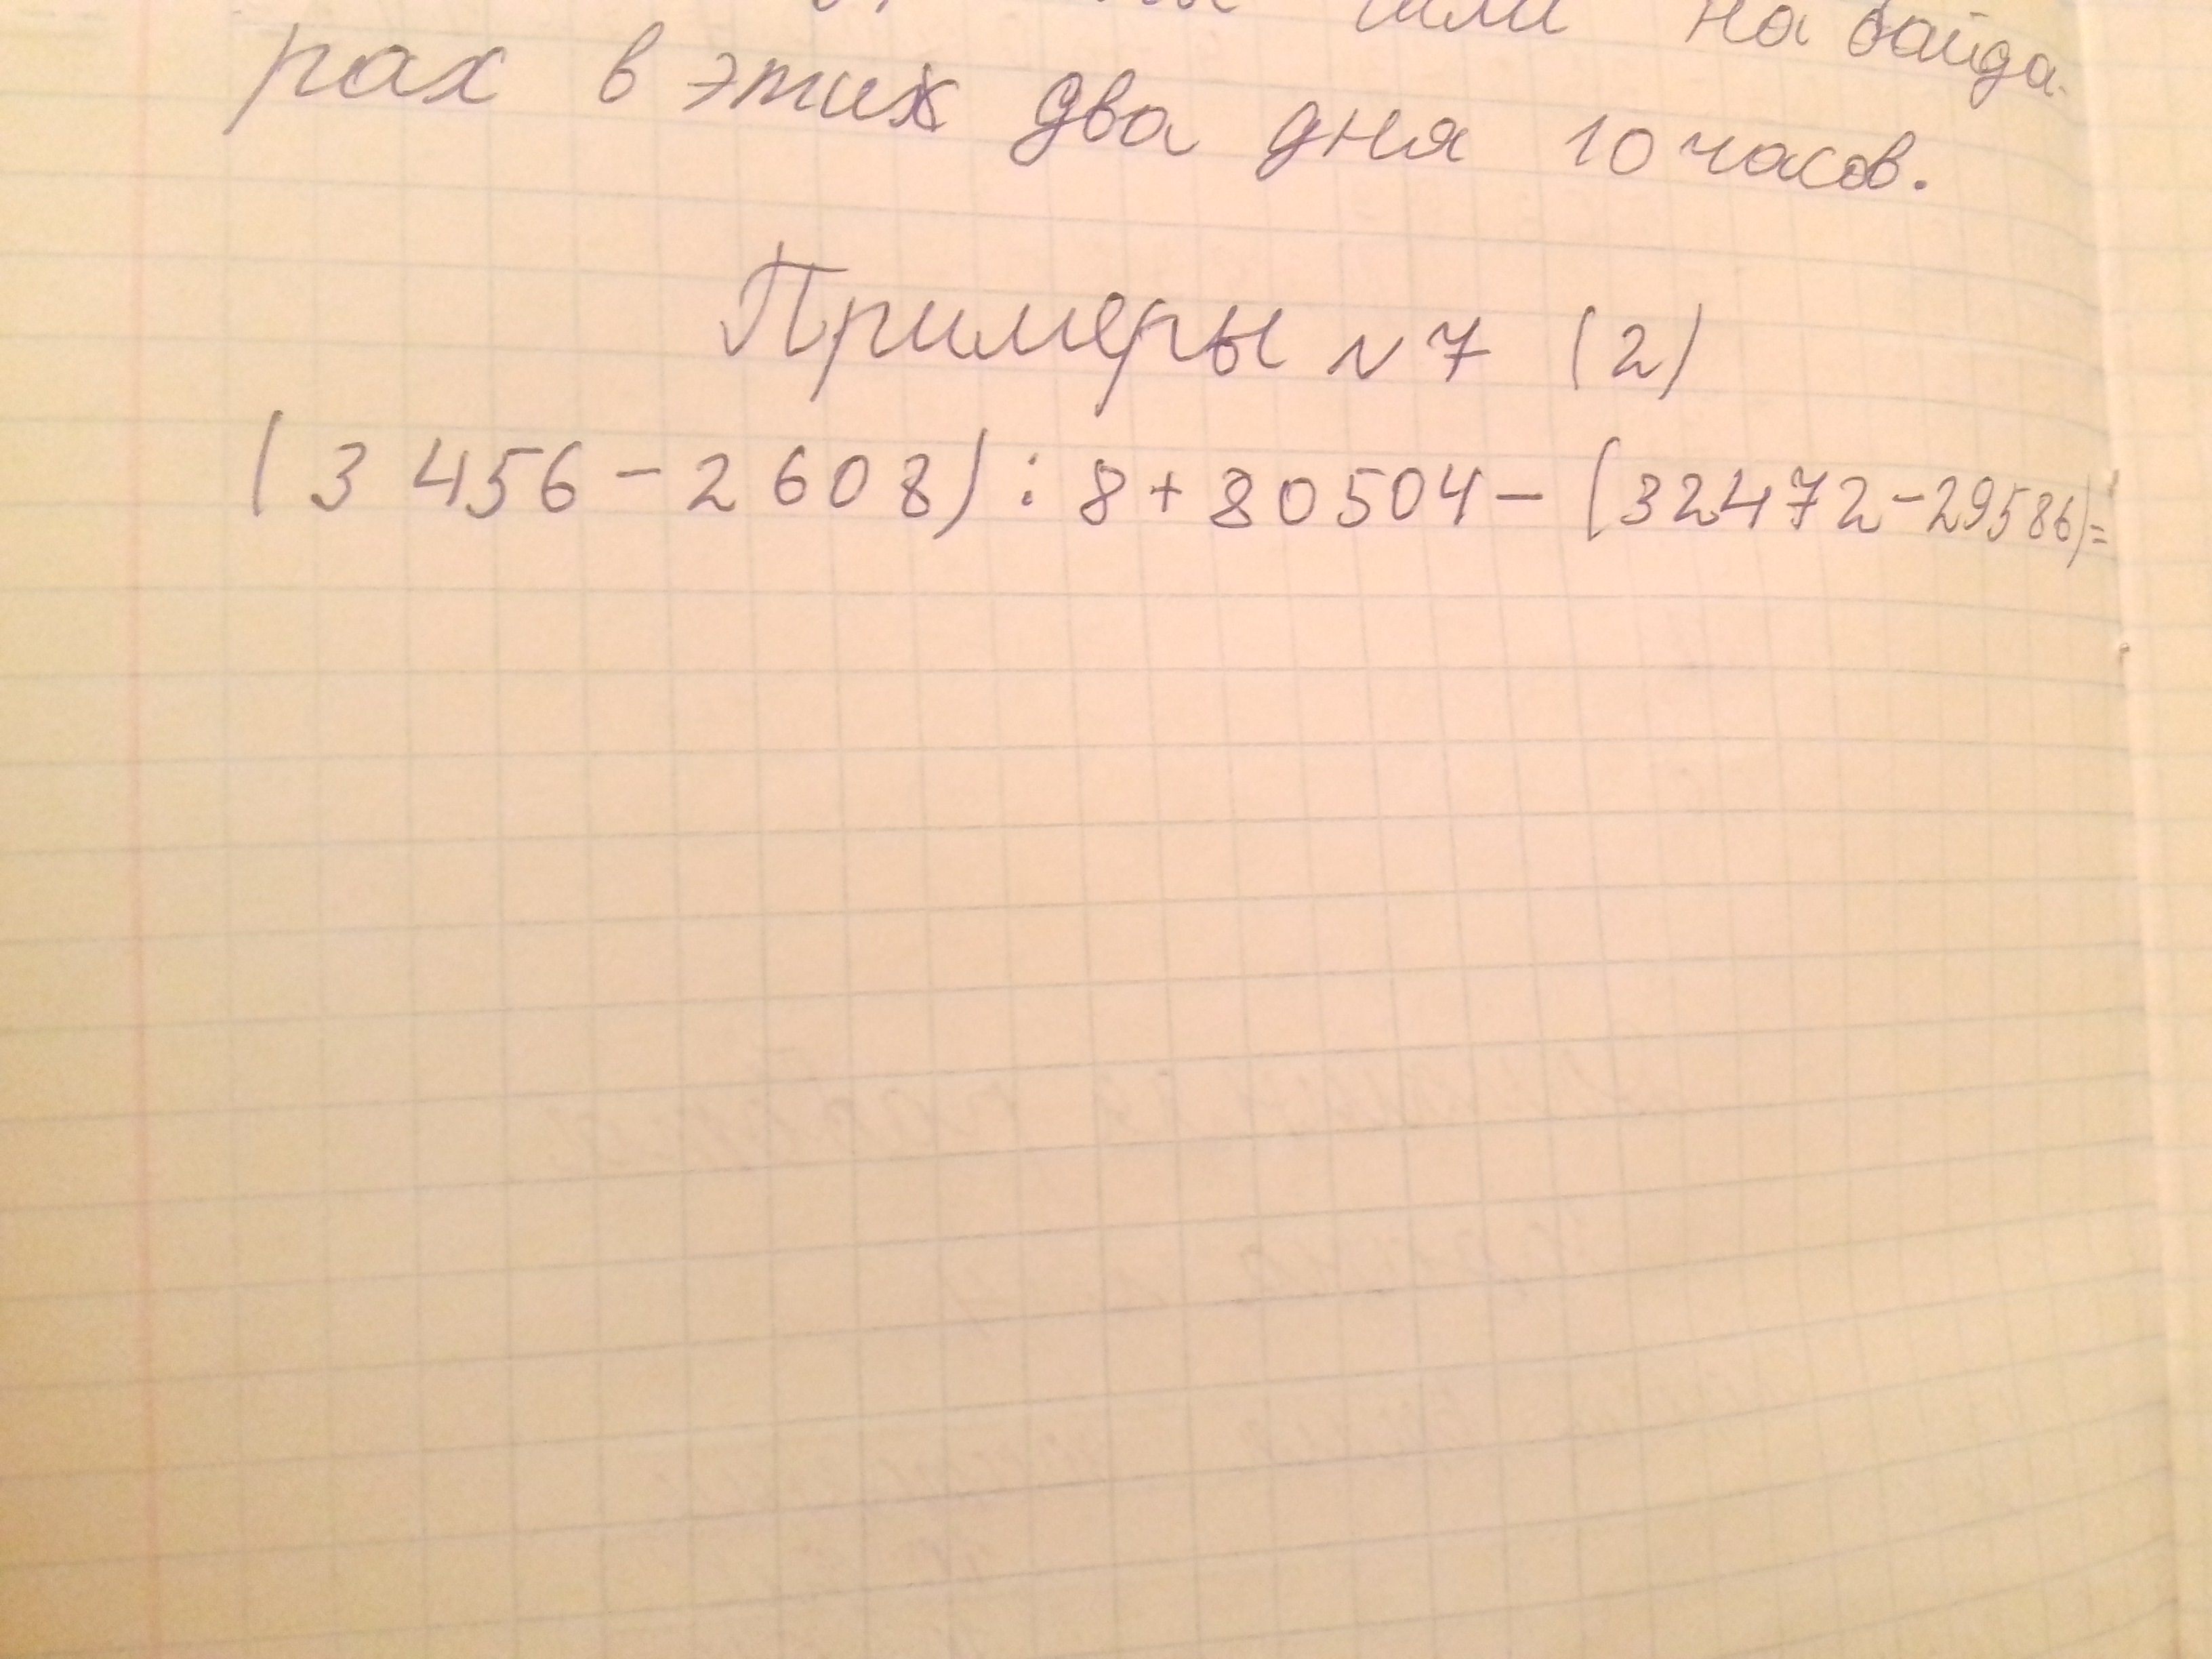 на байда-
рах в этих два дня 10 часов.
Примеры N 7 (2)
(3 456 - 2 608) : 8 + 80504 - (32472 - 29586) =